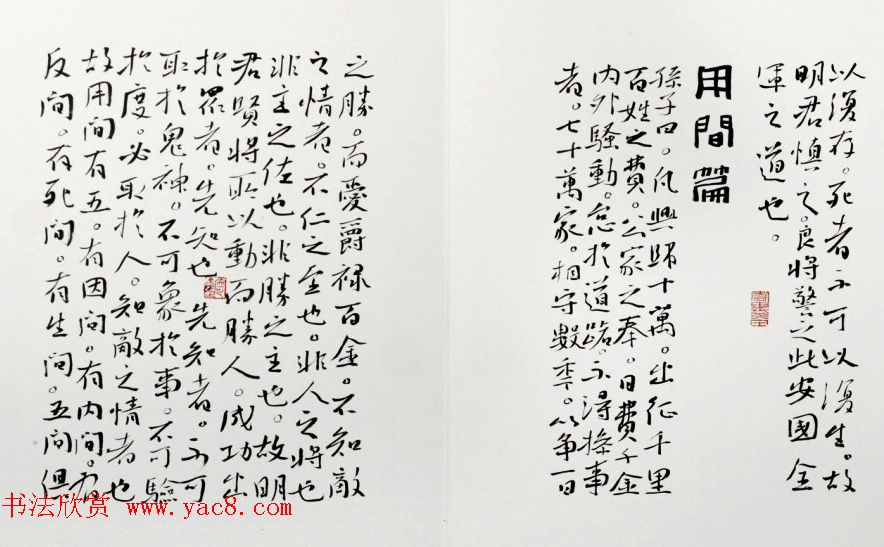 以復存。死者不可以復生。故
明君慎之。良將警之此安國全
軍之道也。
用間篇
孫子曰。凡興師十萬。出征千里
百姓之費。公家之奉。日費千金
內外騷動。怠於道路。不得操事
者。七十萬家。相守數年。以爭一日
之勝。而愛爵祿百金。不知敵
之情者。不仁之至也。非人之將也
非主之佐也。非勝之主也。故明
君賢將所以動而勝人。成功出
於眾者。先知也。先知者。不可
取於鬼神。不可象於事。不可驗
於度。必取於人。知敵之情者也
故用間有五。有因間。有內間。有
反間。有死間。有生間。五間俱
书法欣赏 www.yac8.com